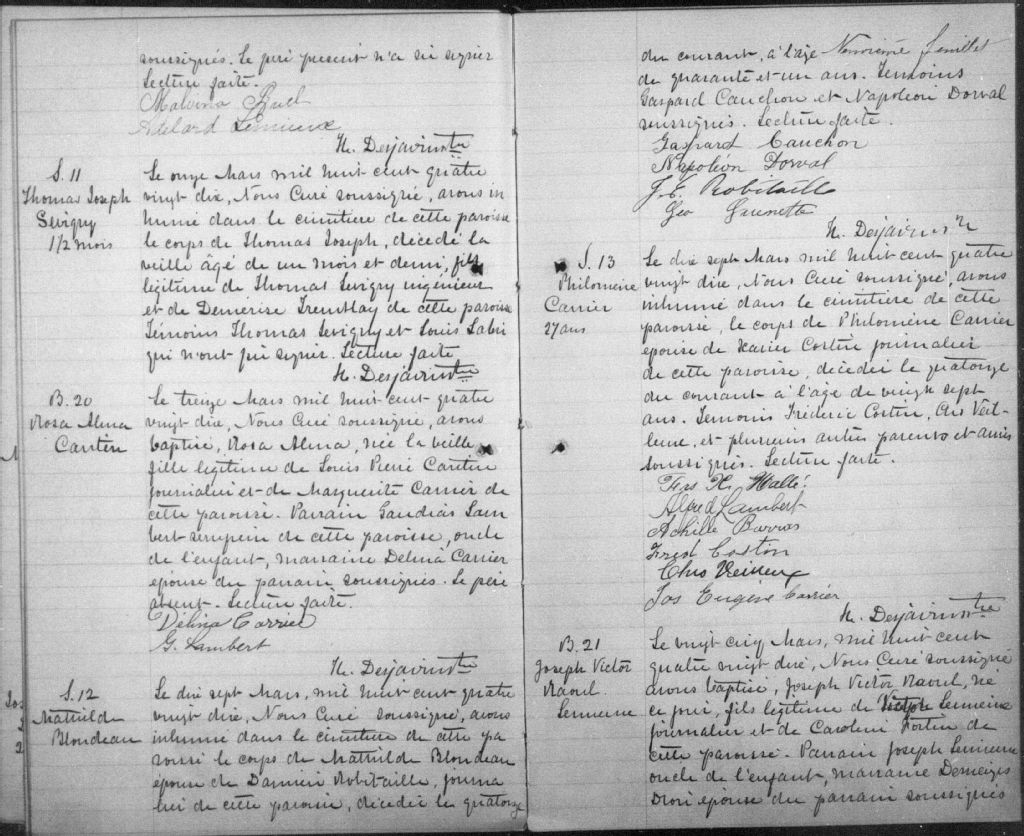 soussignés. Le père present n'a su signer
Lecture faite.
Malvina Ruel
Adelard Lemieux
N. Desjavins Ptre
S. 11
Thomas Joseph
Sevigny
1 1/2 mois
Le onze Mars mil huit cent quatre
vingt dix, Nous Curé soussigné, avons in
humé dans le cimetière de cette paroisse
le corps de Thomas Joseph, décédé la
veille âgé de un mois et demi, fils
légitime de Thomas Sevigny ingenieur
et de Demerise Tremblay de cette paroisse
Témoins Thomas Sevigny et Louis Labri
qui n'ont pu signer. Lecture faite
N. Desjavins Ptre
B. 20
Rosa Alma
Cantin
Le treize Mars mil huit cent quatre
vingt dix, Nous Curé soussigné, avons
baptisé, Rosa Alma, née la veille
fille legitime de Louis Pierre Cantin
journalier et de Marguerite Carrier de
cette paroisse. Parrain Gaudias Lam
bert serrurier de cette paroisse, oncle
de l'enfant, marraine Delina Carrier
épouse du parrain soussignés. Le père
absent. Lecture faite.
Délina Carrier
G. Lambert
N. Desjavins Ptre
S. 12
Mathilde
Blondeau
Le dix sept Mars, mil huit cent quatre
vingt dix, Nous Curé soussigné, avons
inhumé dans le cimetière de cette pa
roisse le corps de Mathilde Blondeau
épouse de Damien Robitaille, journa
lier de cette paroisse, décédée le quatorze
Neuvième feuillet
du courant, à l'age
de quarante et un ans. Temoins
Gaspard Cauchon et Napoleon Dorval
soussignés. Lecture faite.
Gaspard Cauchon
Napoléon Dorval
J. E. Robitaille
Geo
N. Desjavins Ptre
S. 13
Philomene
Carrier
27 ans
Le dix sept Mars mil huit cent quatre
vingt dix, Nous Curé soussigné, avons
inhumé dans le cimetière de cette
paroisse, le corps de Philomène Carrier
épouse de Xavier Costin journalier
de cette paroisse, décédée le quatorze
du courant à l'âge de vingt sept
ans. Temoins Fréderic Costin, Chs Veil-
leux, et plusieurs autres parents et amis
soussignés. Lecture faite.
Frs X. Hallé
Alfred Lambert
Achille Barras
Fred Coston
Chs Veilleux
Jos Eugène Carrier
N. Desjavins Ptre
B. 21
Joseph Victor
Raoul
Lemieux
Le vingt cinq Mars, mil huit cent
quatre vingt dix, Nous Curé soussigné
avons baptisé, Joseph Victor Raoul, né
ce jour, fils légitime de Lemieux
journalier et de Caroline Fortin de
cette paroisse. Parrain Joseph Lemieux
oncle de l'enfant, marraine Demeiges
Dion épouse du parrain soussignés